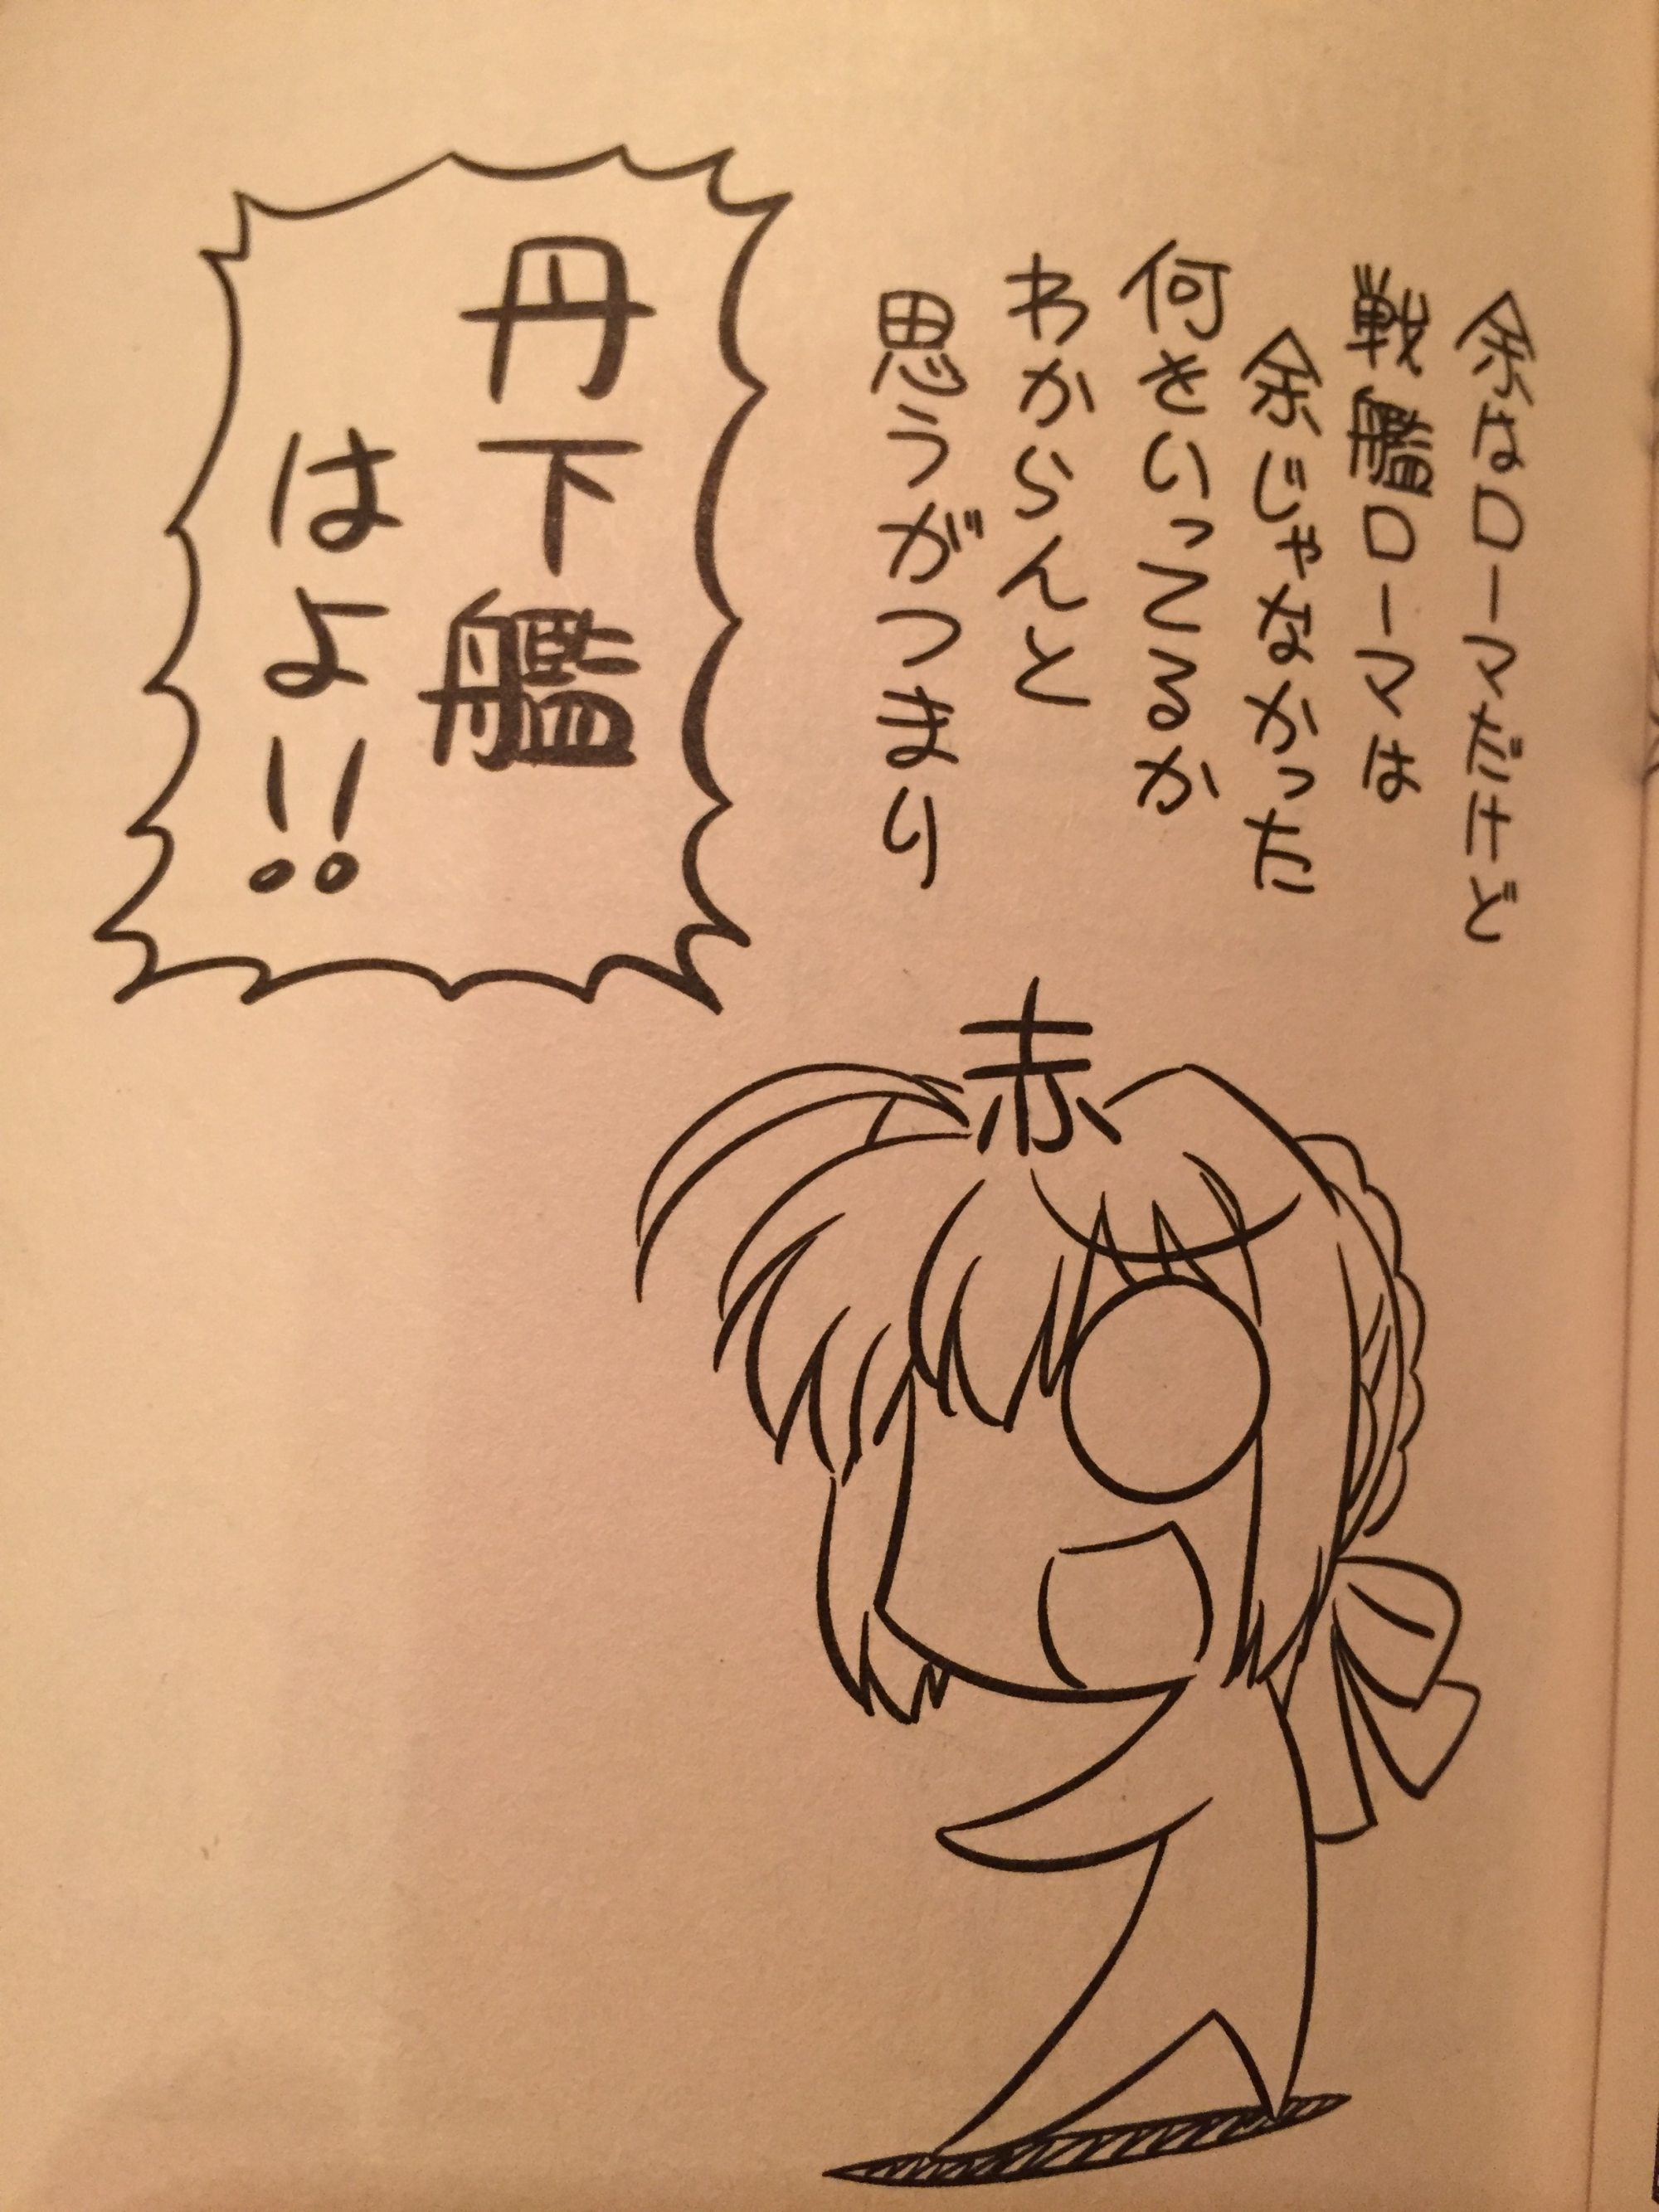 余はローマだけど
戦艦ローマは
余じゃなかった
何をいってるか
わからんと
思うがつまり
丹下艦
はよ!!
赤